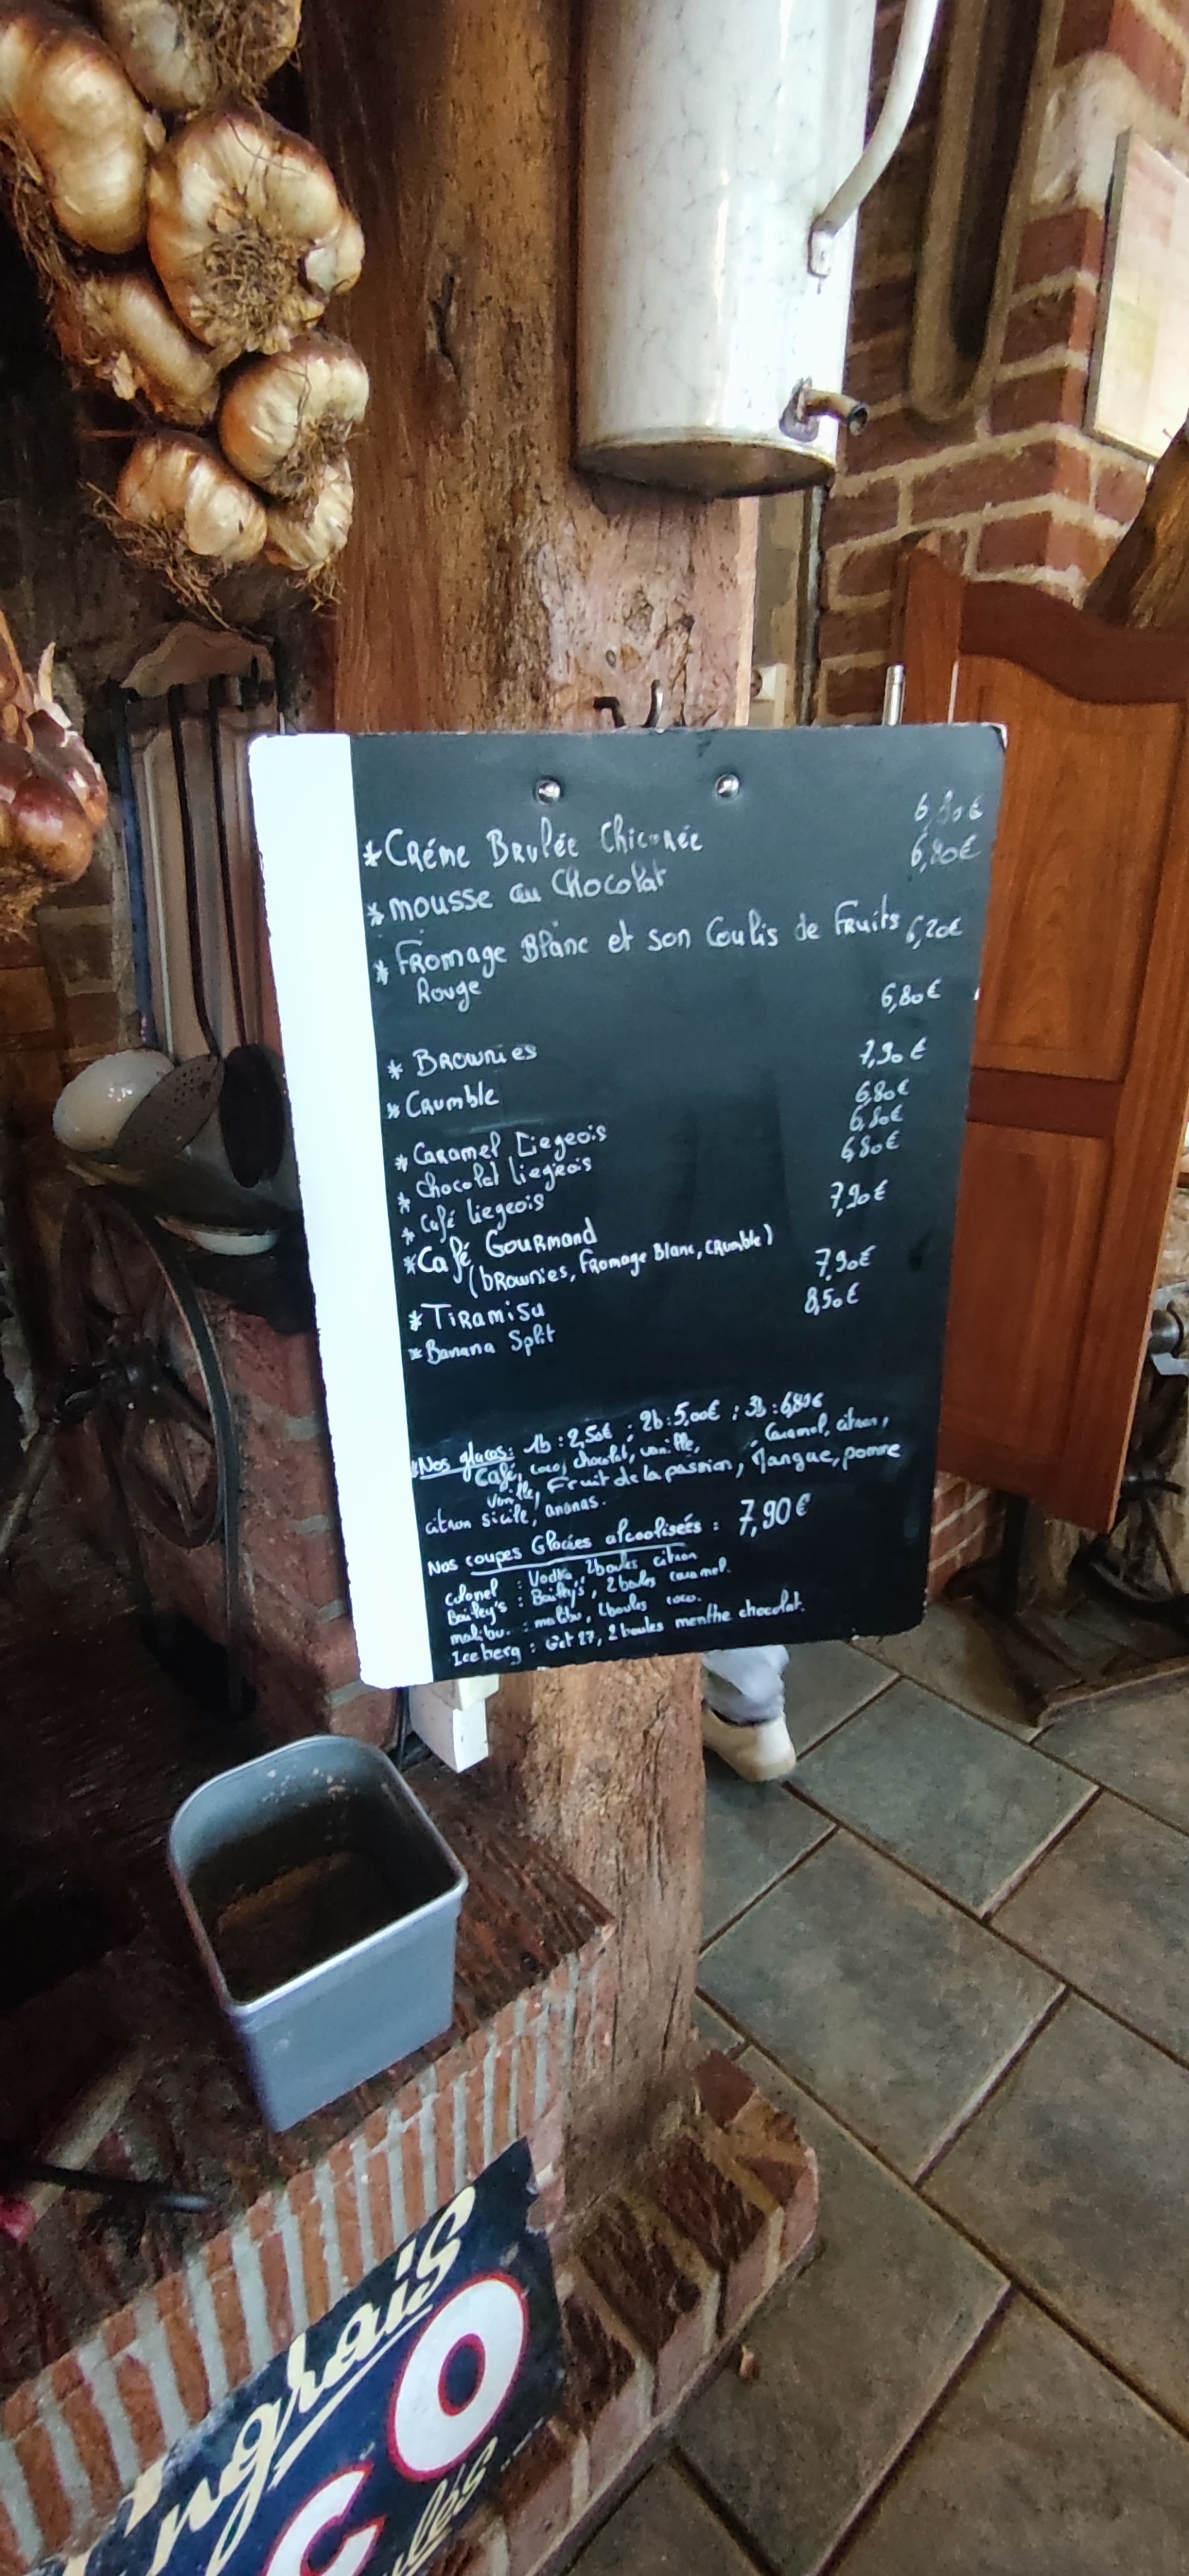 * Crème Brulée Chicorée 6,90€
* mousse au Chocolat 6,80€
* Fromage Blanc et son Coulis de Fruits 6,20€
Rouge
* Brownies 6,80€
* Crumble 7,90€
* Caramel Liegeois 6,80€
* Chocolat liegeois 6,80€
* Café liegeois 6,80€
* Café Gourmand 7,90€
(brownies, Fromage Blanc, crumble)
* Tiramisu 7,90€
* Banana Split 8,50€
* Nos glaces: 1b : 2,50€ ; 2b : 5,00€ ; 3b : 6,80€
Café, coco, chocolat, vanille, Caramel, citron,
Fruit de la passion, Mangue, pomme
citron sicile, ananas.
Nos coupes Glacées alcoolisées : 7,90€
Colonel : Vodka, 2 boules citron
Bailey's : Bailey's, 2 boules caramel.
malibu : malibu, 2 boules coco.
Iceberg : Get 27, 2 boules menthe chocolat.
Engrais
CO